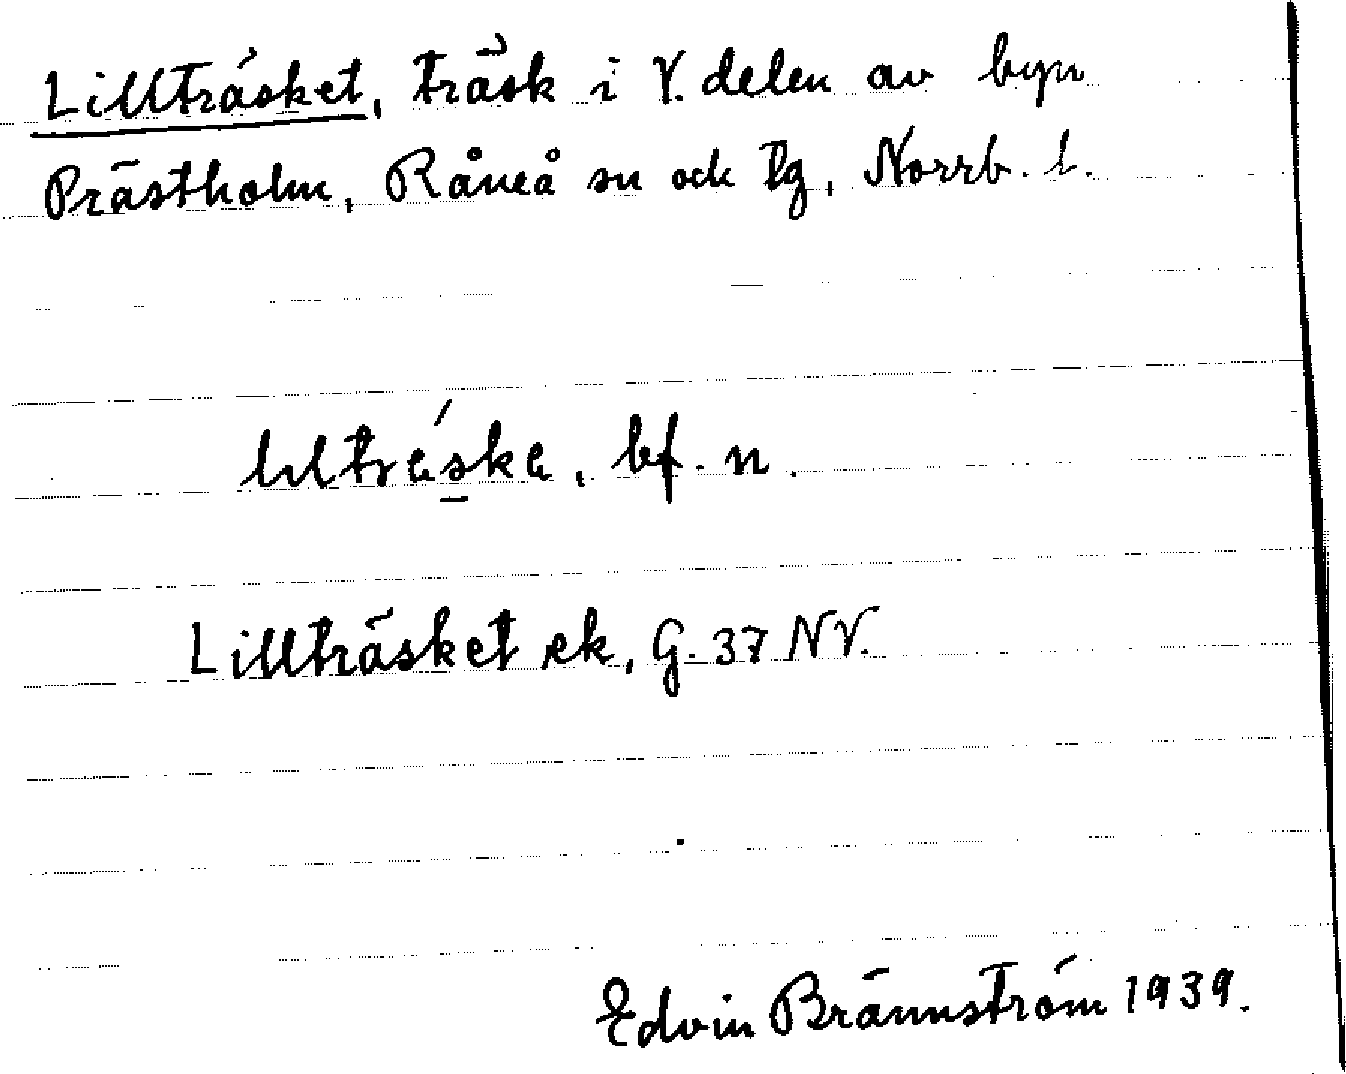 Lillträsket, träsk i V. delen av byn
Prästholm, Råneå sn ock tg, Norrb. l.
bf. n.
Lillträsket ek, G. 37 NV.
Edvin Brännström 1939.